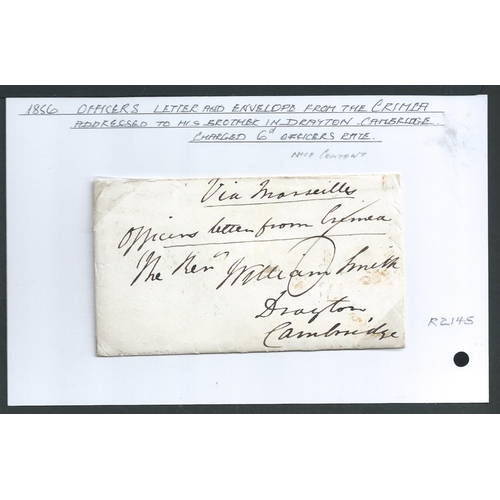 1856 OFFICERS LETTER AND ENVELOPE FROM THE CRIMEA
ADDRESSED TO HIS BROTHER IN DRAYTON. CAMBRIDGE.
CHARGED 6d OFFICERS RATE.
NICE CONTENT
Via Marseilles
Officers letter from Crimea
The Revd William Smith
Drayton
Cambridge
R2145